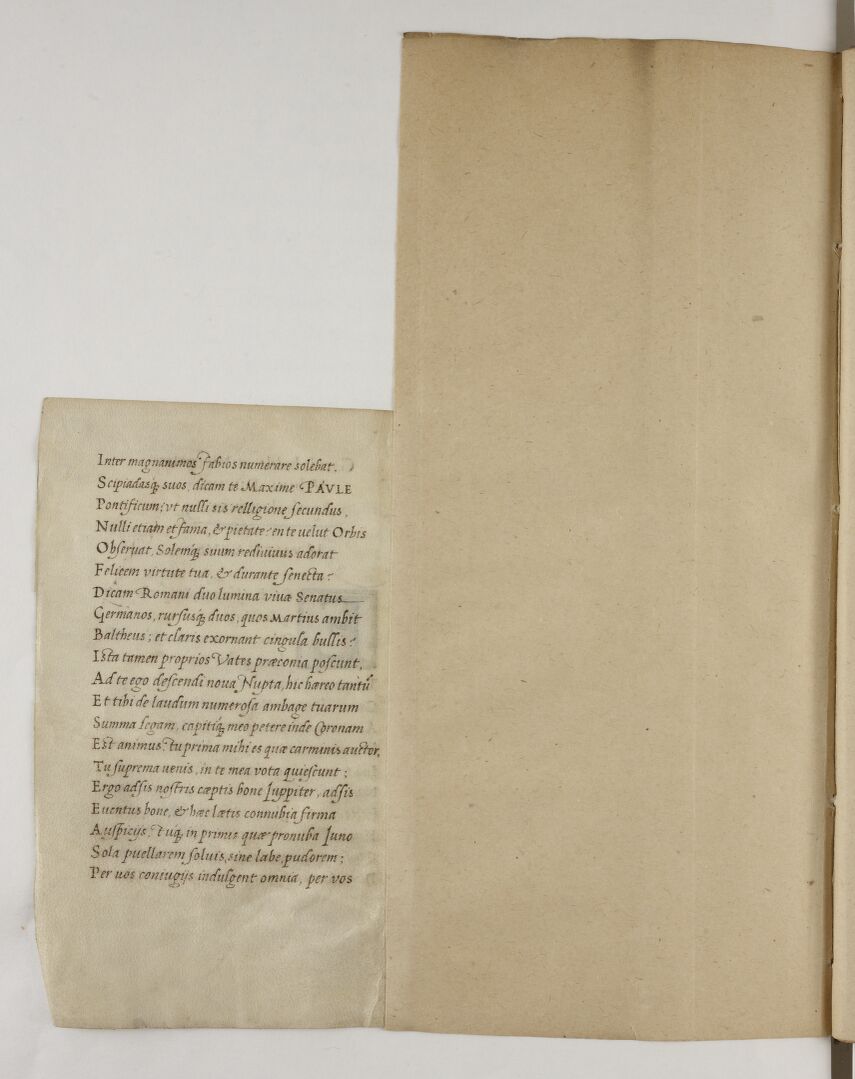 Inter magnanimos fabios numerare solebat.
Scipiadasq; suos, dicam te Maxime PAVLE
Pontificum: vt nulli sis relligione secundus,
Nulli etiam et fama, & pietate: en te velut Orbis
Obseruat, Solemq; suum rediuiuus adorat
Felicem virtute tua, & durante senecta:
Dicam Romani duo lumina viuæ Senatus
Germanos, rursusq; duos, quos Martius ambit
Baltheus; et claris exornant cingula bullis:
Ista tamen proprios Vates præconia poscunt,
Ad te ego descendi noua Nupta, hic hæreo tantũ
Et tibi de laudum numerosa ambage tuarum
Summa legam, capitiq; meo petere inde Coronam
Est animus: tu prima mihi es quæ carminis auctor,
Tu suprema uenis, in te mea vota quiescunt;
Ergo adsis nostris cæptis bone Juppiter, adsis
Euentus bone, & hæc lætis connubia firma
Auspicijs, Tuq; in primis quæ pronuba Juno
Sola puellarem soluis, sine labe, pudorem;
Per uos coniugijs indulgent omnia, per vos